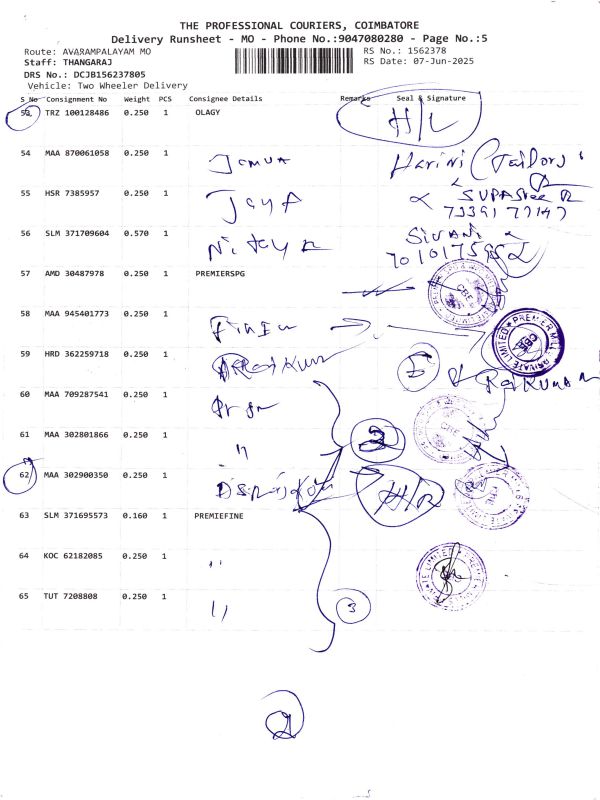 THE PROFESSIONAL COURIERS, COIMBATORE
Delivery Runsheet - MO - Phone No.:9047080280 - Page No.:5
Route: AVARAMPALAYAM MO
RS No.: 1562378
Staff: THANGARAJ
RS Date: 07-Jun-2025
DRS No.: DCJB156237805
Vehicle: Two Wheeler Delivery
S No Consignment No Weight PCS Consignee Details Remarks Seal & Signature
53 TRZ 100128486 0.250 1 OLAGY H/L
54 MAA 870061058 0.250 1 Jamua Harini
55 HSR 7385957 0.250 1 Jaya SUPASree R
56 SLM 371709604 0.570 1 Nitaya SIVANI
57 AMD 30487978 0.250 1 PREMIERSPG
58 MAA 945401773 0.250 1
59 HRD 362259718 0.250 1 5 RajKumar
60 MAA 709287541 0.250 1
61 MAA 302801866 0.250 1 "
62 MAA 302900350 0.250 1 H/R
63 SLM 371695573 0.160 1 PREMIEFINE
64 KOC 62182085 0.250 1 "
65 TUT 7208808 0.250 1 " 3